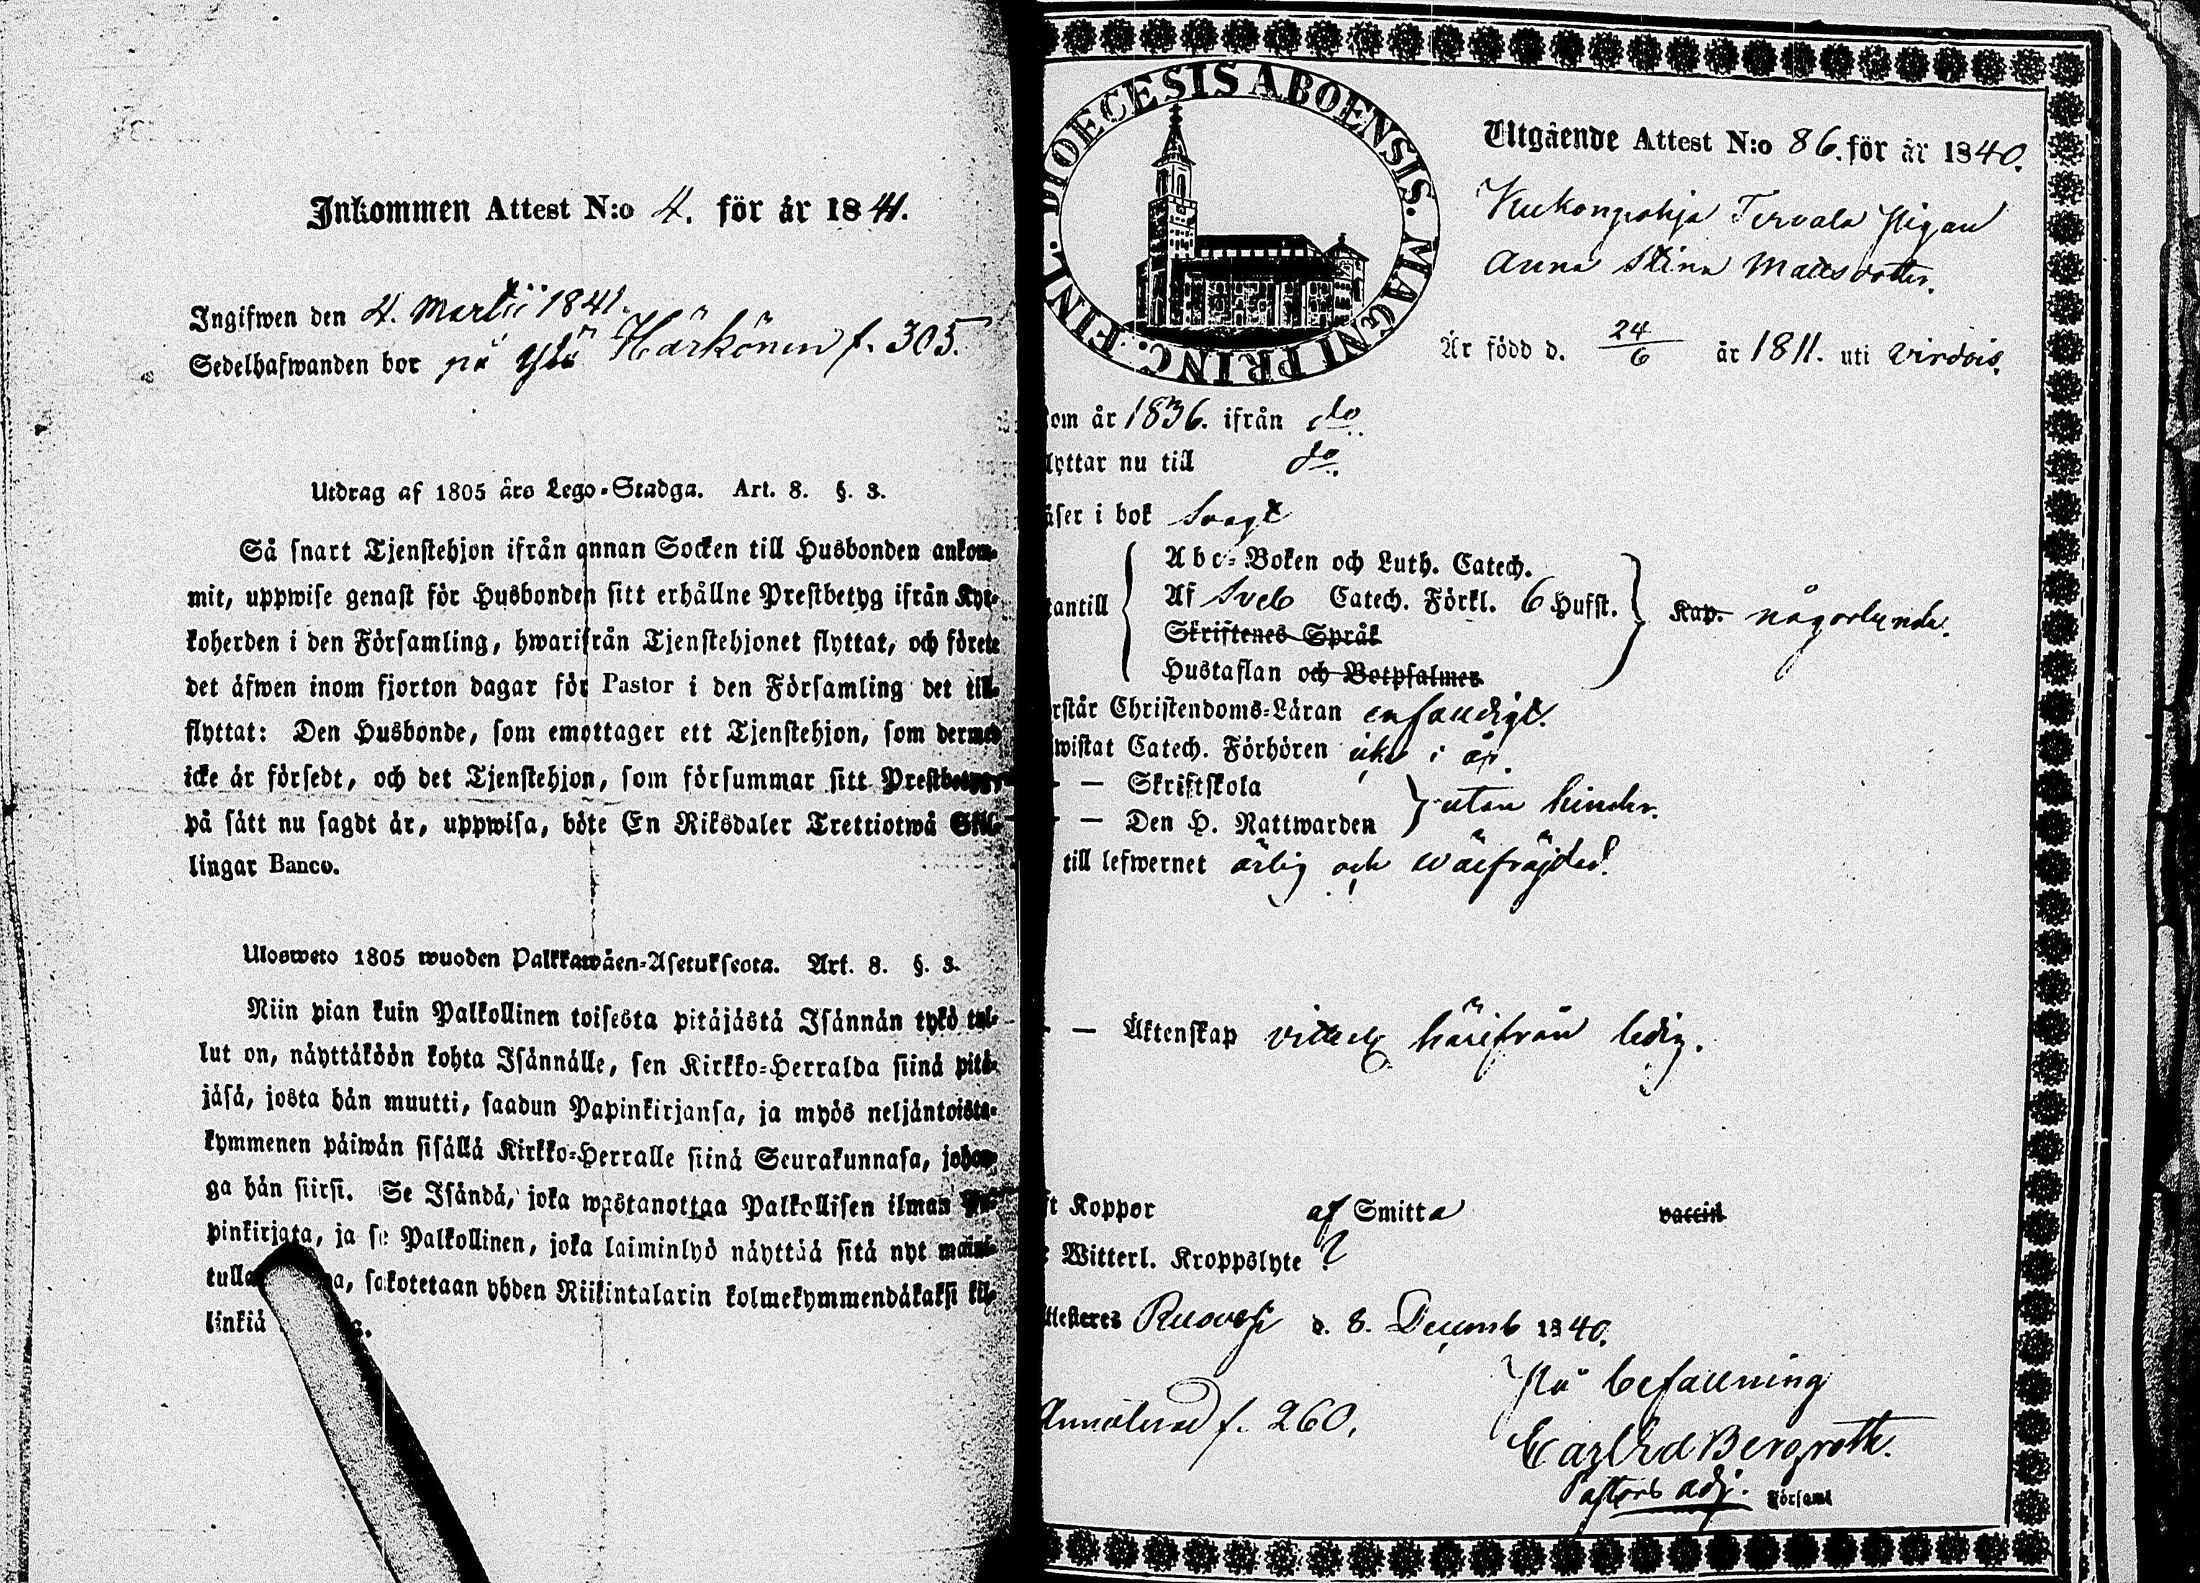 Inkommen Attest N:o 4. för år 1841.
Ingifwen den 4. Martii 1841.
Sedelhafwanden bor på Yli Härkönen f. 305.
Utdrag af 1805 års Lego-Stadga. Art. 8. §. 3.
Så snart Tjenstehjon ifrån annan Socken till Husbonden ankom-
mit, uppwise genast för Husbonden sitt erhållne Prestbetyg ifrån Kyr-
koherden i den Församling, hwarifrån Tjenstehjonet flyttat, och förete
det äfwen inom fjorton dagar för Pastor i den Församling det till-
flyttat: Den Husbonde, som emottager ett Tjenstehjon, som dermed
icke är försedt, och det Tjenstehjon, som försummar sitt Prestbetyg,
på sätt nu sagdt är, uppwisa, böte En Riksdaler Trettiotwå Skil-
lingar Banco.
Ulosweto 1805 wuoden Palkkawäen-Asetuksesta. Art. 8. §. 3.
Niin pian kuin Palkollinen toisesta pitäjästä Isännän tykö tul-
lut on, näyttäköön kohta Isännälle, sen Kirkko-Herralda siinä pitä-
jäsä, josta hän muutti, saadun Papinkirjansa, ja myös neljäntoista-
kymmenen päiwän sisällä Kirkko-Herralle siinä Seurakunnasa, johon-
ga hän siirsi. Se Isändä, joka wastanottaa Palkollisen ilman Pa-
pinkirjata, ja se Palkollinen, joka laiminlyö näyttää sitä nyt maini-
tulla a, sakotetaan yhden Riikintalarin kolmekymmendäkaksi kil-
linkiä
DIOECESIS ABOENSIS. MAGNI PRINC. FINL.
Utgående Attest N:o 86. för år 1840.
Kukonpohja Tervala Pigan
Anna Stina Mattsdotter.
Är född d. 24/6 år 1811. uti Virdois.
om år 1836. ifrån do
lyttar nu till do
äser i bok svagt
antill
Abc-Boken och Luth. Catech.
Af Sveb Catech. Förkl. 6 Hufst.
Skriftenes Språk
Hustaflan och Botpsalmer
Kap. någorlunda.
rstår Christendoms-Läran enfaldigt.
wistat Catech. Förhören icke i år.
— Skriftskola
— Den H. Nattwarden
utan hinder.
till lefwernet ärlig och wälfräjdad.
— Äktenskap härifrån ledig.
t Koppor af Smitta vaccin
Witterl. Kroppslyte ?
ttesteres Ruovesi d. 8. Decemb 1840.
På befallning
Anmälevad f. 260.
Carl Bergroth.
Pastors adj. Församl